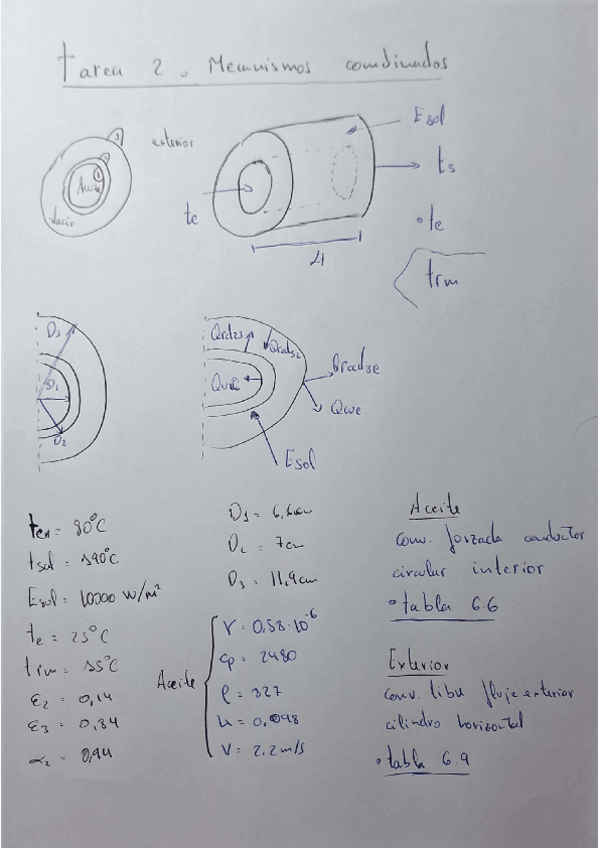 tarea 2. Mecanismos combinados
exterior
Aceite
vacio
1
2
3
Esol
ts
te
te
trm
L1
D3
D1
D2
Qrd23
Qrad32
Qrad3e
Qcve
Esol
ten = 80°C
tsal = 390°C
Esol = 10000 W/m²
te = 25°C
trm = 15°C
ε2 = 0,14
ε3 = 0,84
α2 = 0,94
D1 = 6,6cm
D2 = 7cm
D3 = 11,9cm
Aceite
ν = 0,58·10⁻⁶
cp = 2480
ρ = 827
k = 0,098
V = 2.2 m/s
Aceite
conv. forzada conductor
circular interior
• tabla 6.6
Exterior
conv. libre flujo exterior
cilindro horizontal
• tabla 6.9